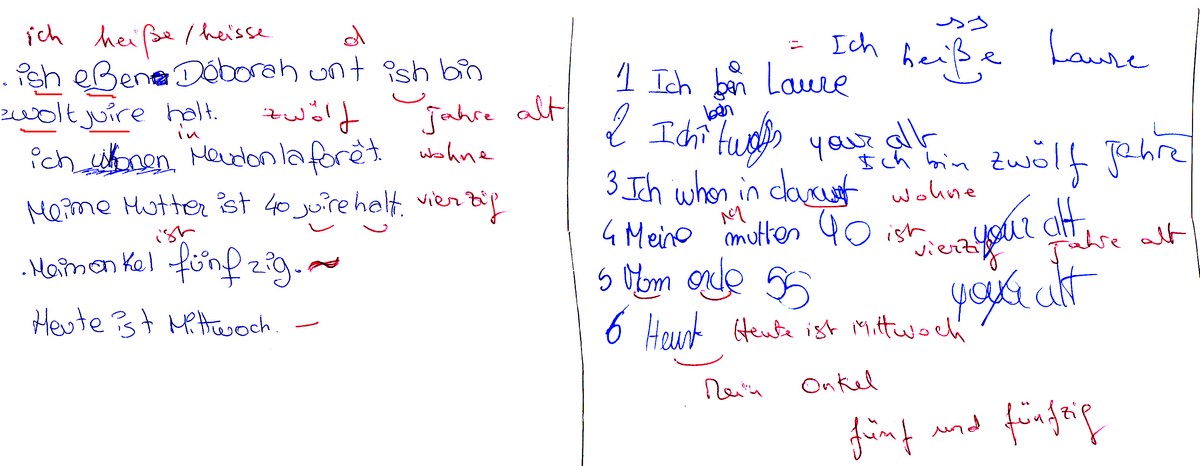 ich heiße/heisse d
. ish eßene Déborah unt ish bin
zwolt juire halt. zwölf Jahre alt
in
ich wonen Meudon la forêt. wohne
Meime Mutter ist 40 juire halt. vierzig
ist
. Meimonkel fünfzig.
Heute ist Mittwoch.
ss
= Ich heiße Laure
1 Ich bin Laure
bin
2 Ich your alt
Ich bin zwölf Jahre
3 Ich whon in wohne
M
4 Meine mutter 40 ist your alt
vierzig Jahre alt
5 Mom onde 55 alt
6 Heust Heute ist Mittwoch
Mein Onkel
fünf und fünfzig